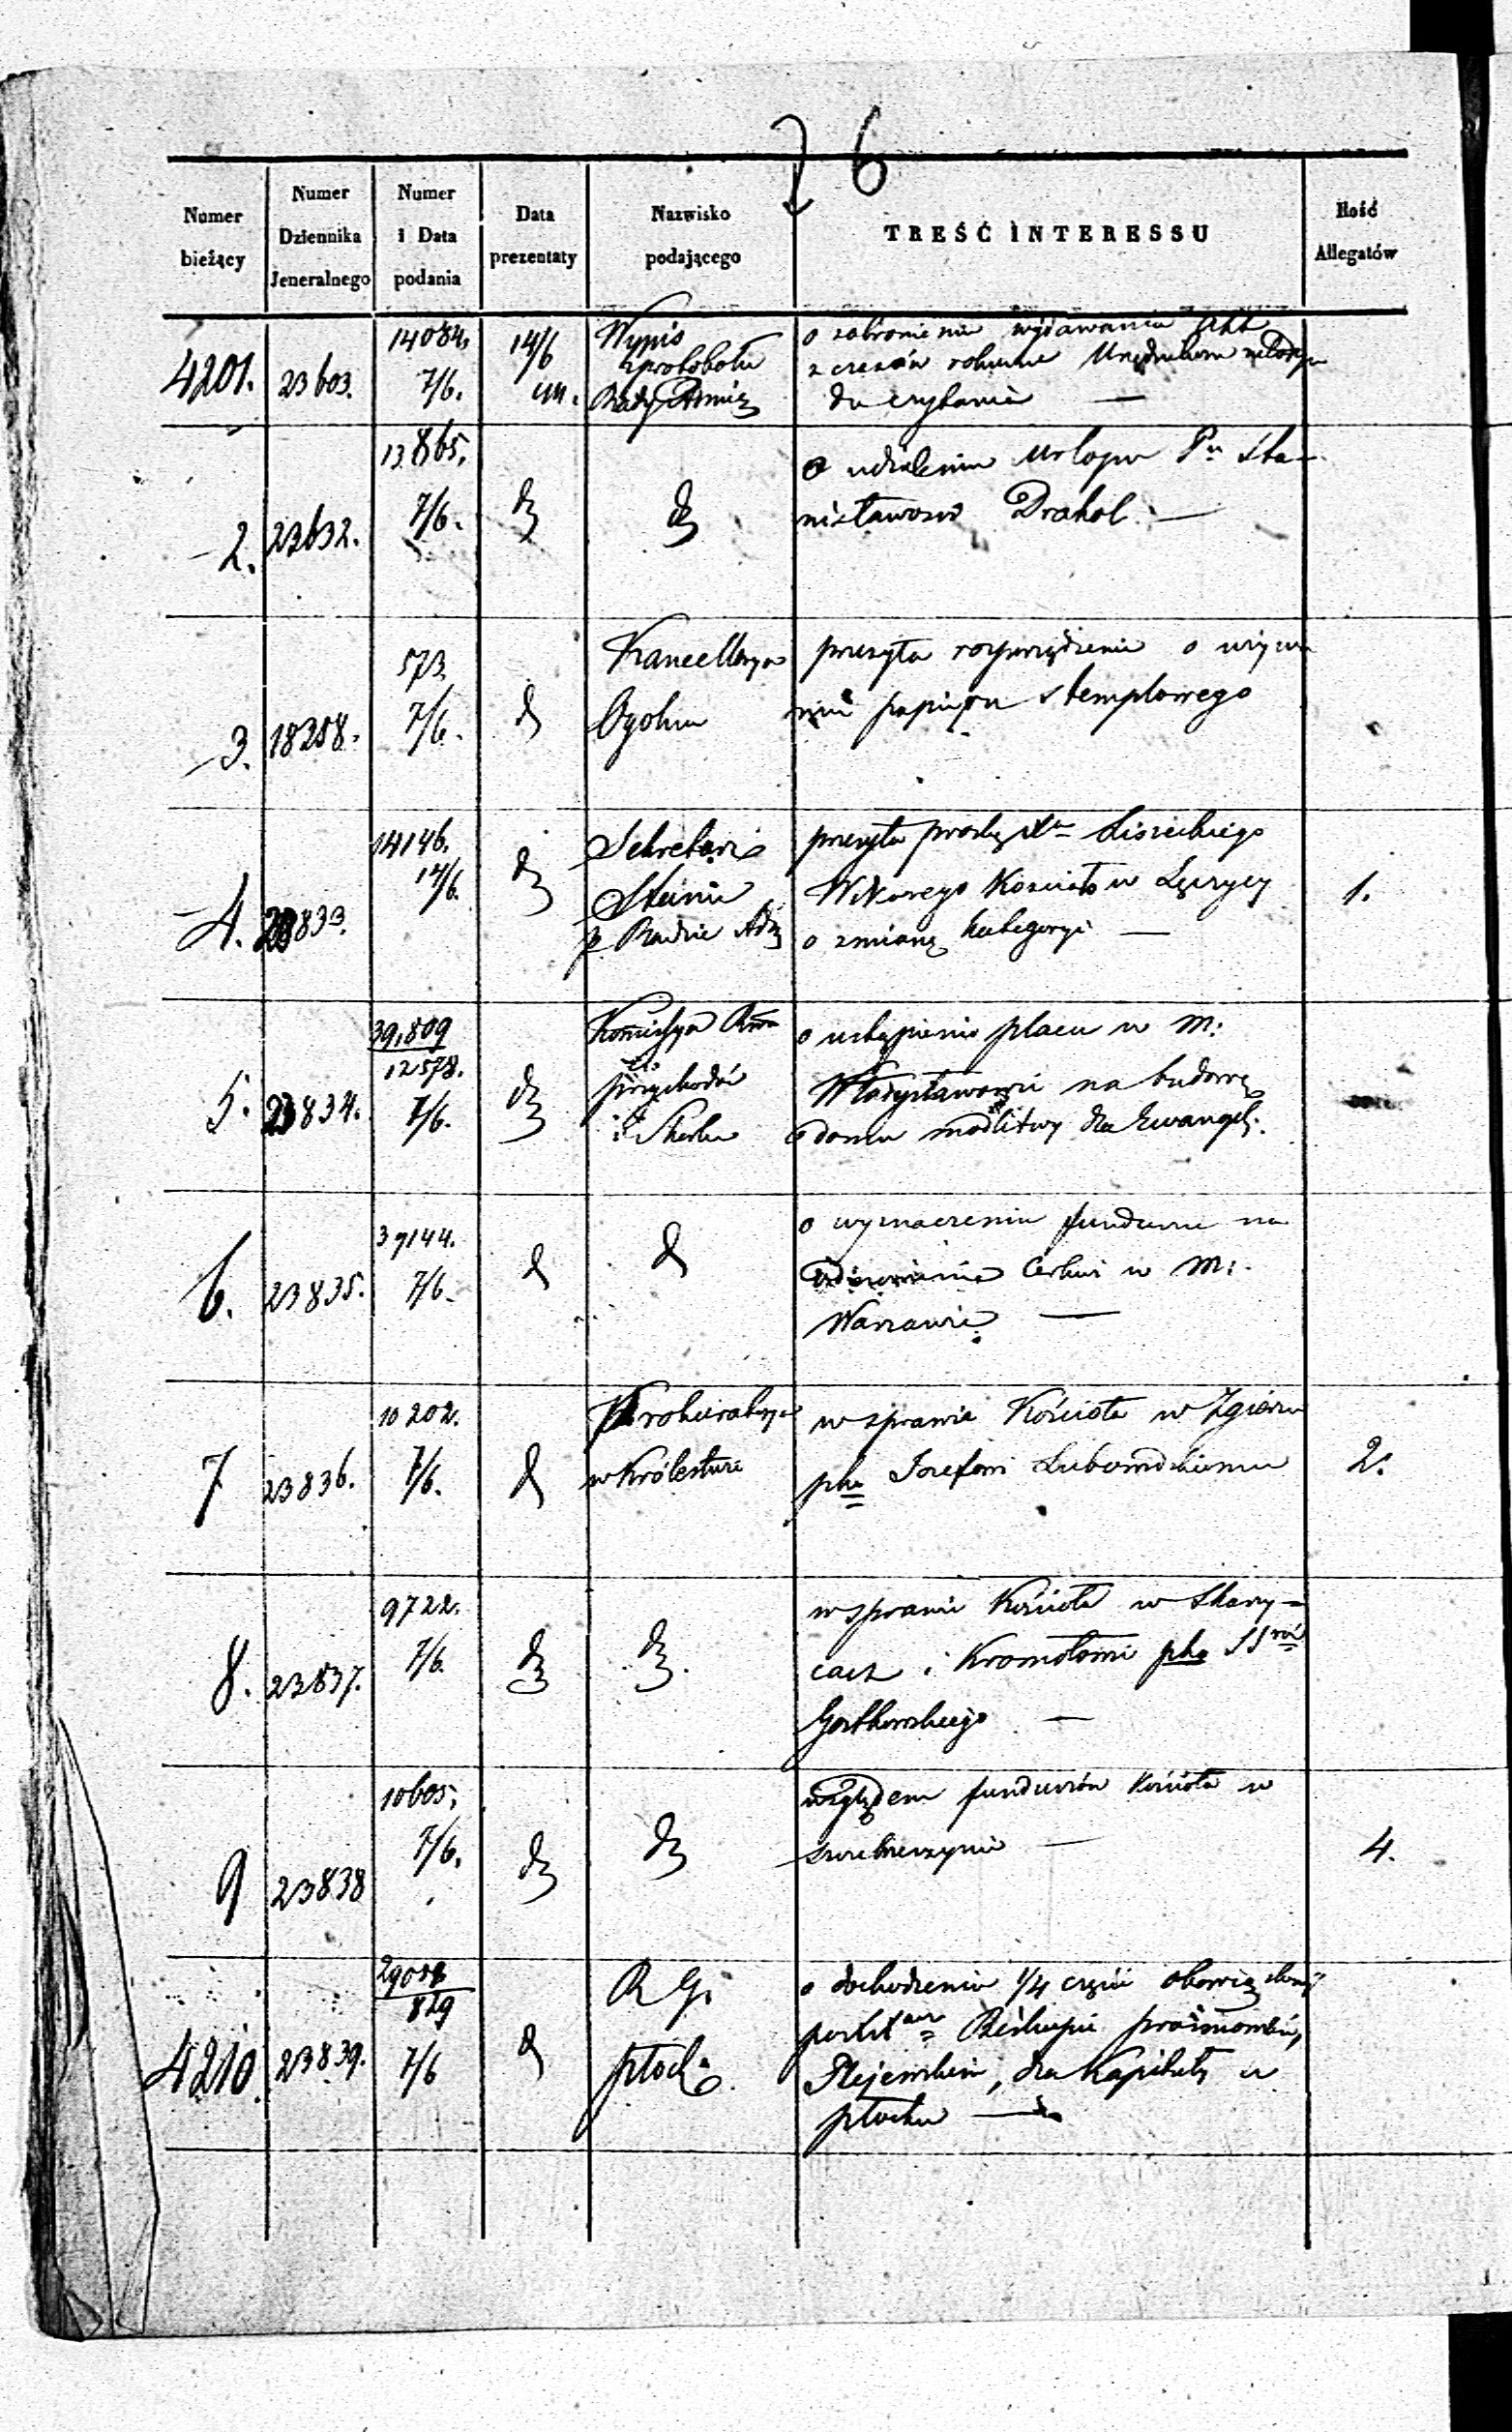 26
Numer bieżący
Numer Dziennika Jeneralnego
Numer i Data podania
Data prezentaty
Nazwisko podającego
TREŚĆ INTERESSU
Ilość Allegatów
4201. 23603. 14084. 7/6. 14/6 Wypis z protokołu Rady o zabronieniu wydawania Akt
z czasów Urzędnikom
do czytania —
2. 23632. 13865. 7/6. d d o udzieleniu Urlopu Pu Sta-
nisławowi Drohol. —
3. 18258. 573. 7/6. d Kancellarya Ogólna przesyła rozporządzenie o używa
niu papieru stemplowego
4. 23833. 14146. 12/6. d Sekretarz Stanu p Radzie Adm przesyła prośbę Xa Lisieckiego 1.
Wikarego Kościoła w Łęczycy
o zmianę kategoryi —
5. 23834. 39,809 12578. 7/6. d Kommissya Rwa Przychodów i Skarbu o ustąpienie placu w M:
Władysławowie na budowę
domu modlitwy dla Ewangel:
6. 23835. 37144. 7/6. d d o wyznaczeniu funduszu na
Cerkwi w M:
Warszawie —
7 23836. 10202. 7/6. d Prokuratorya w Królestwie w sprawie Kościoła w Zgierzu 2.
pko Józefowi Lubomirskiemu
8. 23837. 9722. 7/6. d d. w sprawie Kościoła w Skary-
cach i Kromołowie pko SSrów
Gostkowskiego —
9 23838 10605. 7/6. d d względem funduszów Kościoła w 4.
Szczebrzeszynie —
4210. 23839. 29058 829 7/6 d R G. Płocki o dochodzeniu 1/4 części
Biskupie
Plejewskim, dla Kapituły w
Płocku —